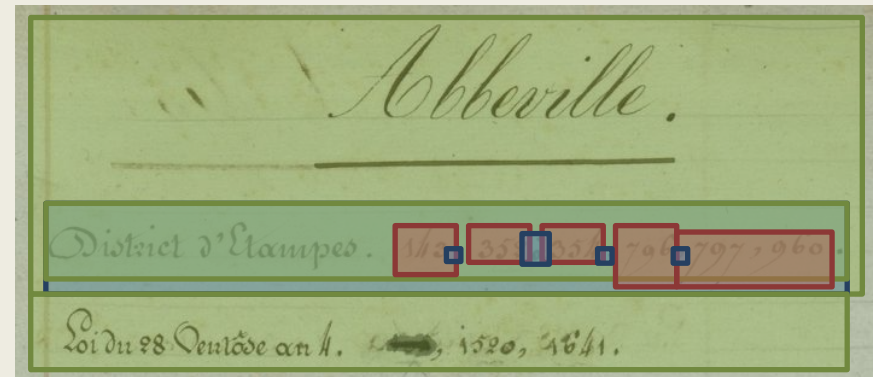 Abbeville.
District d'Etampes. 143, 353, 354, 796, 797, 960.
Loi du 28 Ventôse an 4. 1520, 1641.